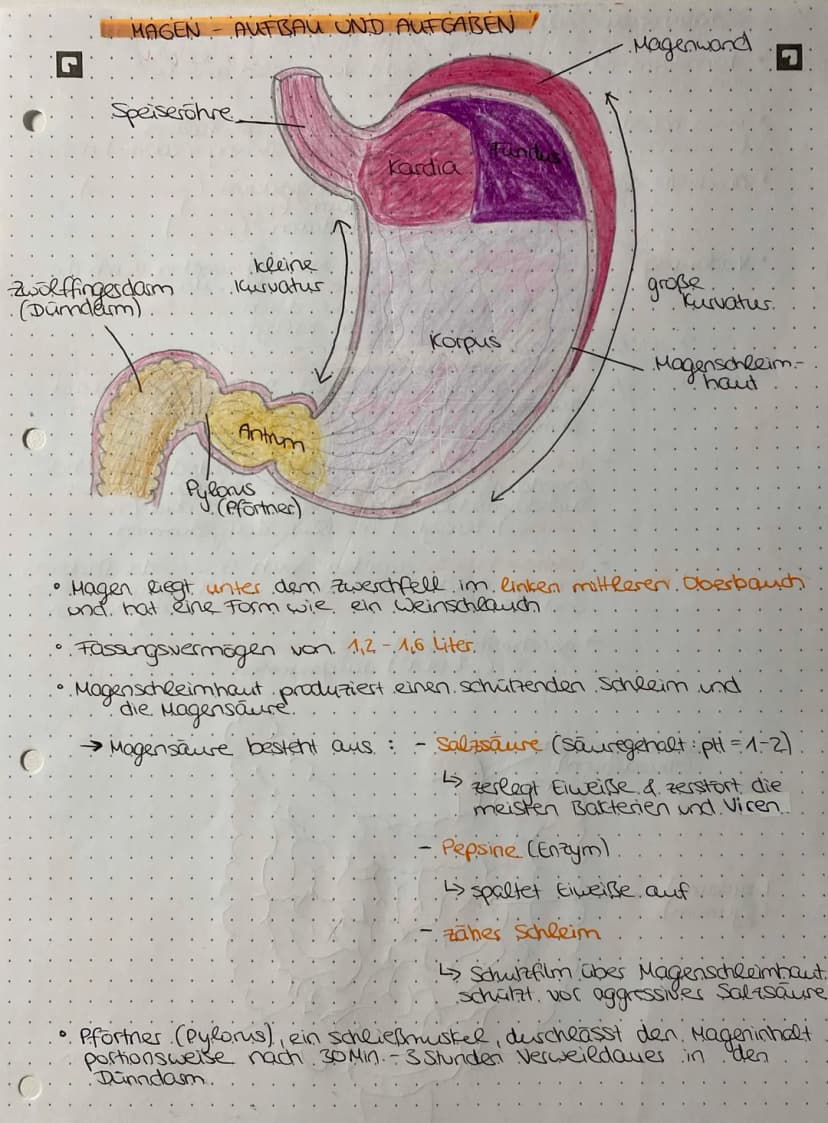 MAGEN - AUFBAU UND AUFGABEN
Magenwand
Speiseröhre
Kardia
Fundus
kleine
Kurvatur
Zwölffingerdarm
(Dünndarm)
große
Kurvatur
Korpus
Magenschleim-
haut
Antrum
Pylorus
(Pförtner)
• Magen liegt unter dem Zwerchfell im linken mittleren Oberbauch
und hat eine Form wie ein Weinschlauch
• Fassungsvermögen von 1,2 - 1,6 Liter
• Magenschleimhaut produziert einen schützenden Schleim und
die Magensäure
→ Magensäure besteht aus : - Salzsäure (Säuregehalt : pH = 1-2)
↳ zerlegt Eiweiße & zerstört die
meisten Bakterien und Viren
- Pepsine (Enzym)
↳ spaltet Eiweiße auf
- zäher Schleim
↳ Schutzfilm über Magenschleimhaut
schützt vor aggressiver Salzsäure
• Pförtner (Pylorus), ein schließmuskel, durchlässt den Mageninhalt
portionsweise nach 30 Min. - 3 Stunden Verweildauer in den
Dünndarm